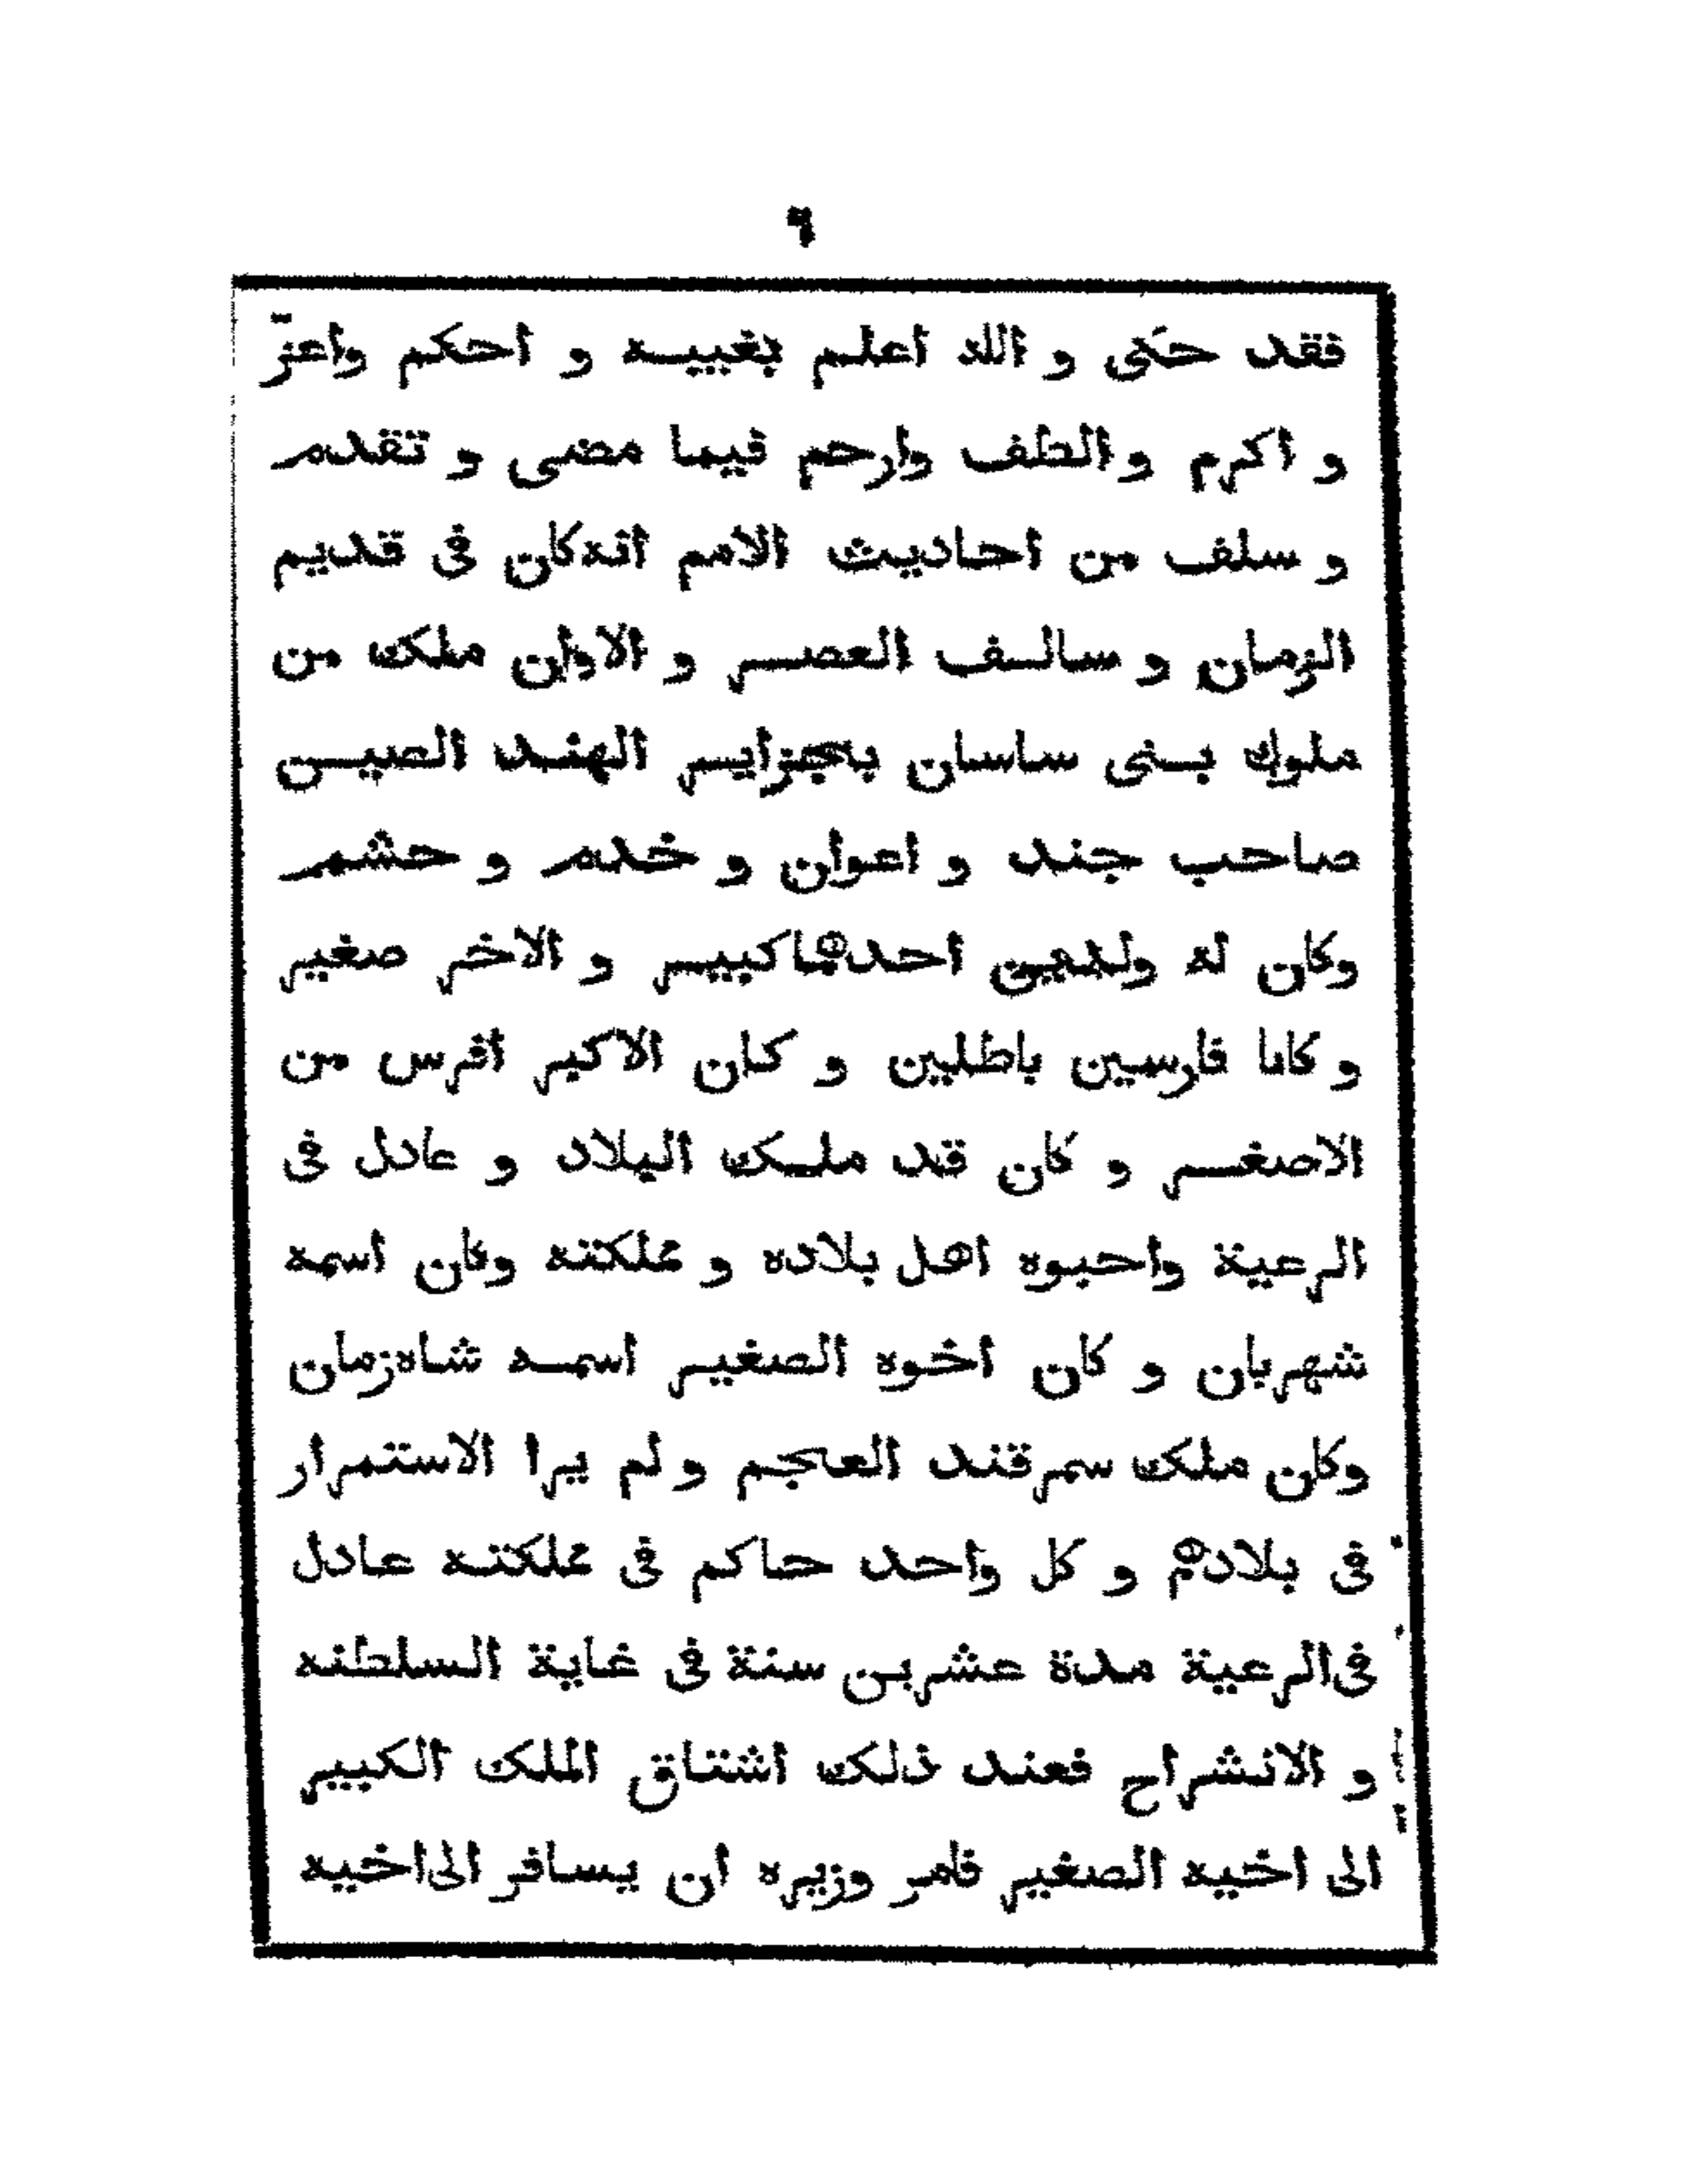 ٦
فقد حكى و الله اعلم بغيبه و احكم واعزّ
و اكرم والطف وارحم فيما مضى و تقدم
و سلف من احاديث الامم انه كان فى قديم
الزمان و سالف العصر و الاوان ملك من
ملوك بنى ساسان بجزاير الهند الصين
صاحب جند و اعوان و خدم و حشم
وكان له ولدين احدهما كبير و الاخر صغير
و كانا فارسين باطلين و كان الاكبر افرس من
الاصغر و كان قد ملك البلاد و عادل فى
الرعية واحبوه اهل بلاده و مملكته وكان اسمه
شهربان و كان اخوه الصغير اسمه شاه زمان
وكان ملك سمرقند العجم ولم يرا الاستمرار
فى بلادهم و كل واحد حاكم فى مملكته عادل
فى الرعية مدة عشرين سنة فى غاية السلطنه
و الانشراح فعند ذلك اشتاق الملك الكبير
الى اخيه الصغير فامر وزيره ان يسافر الى اخيه